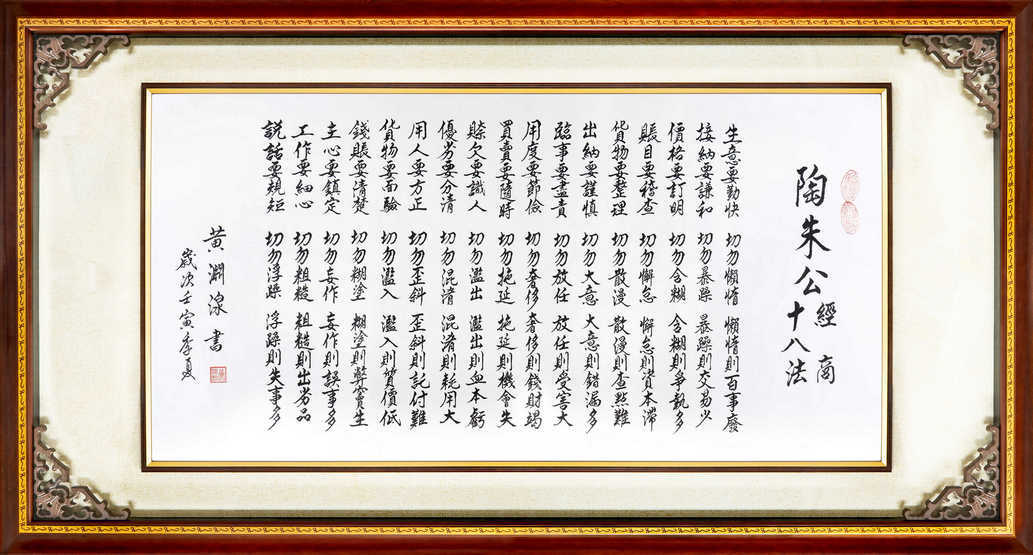 陶朱公經商十八法
生意要勤快 切勿懶惰 懶惰則百事廢
接納要謙和 切勿暴躁 暴躁則交易少
價格要打明 切勿含糊 含糊則爭執多
賬目要稽查 切勿懈怠 懈怠則資本滯
貨物要整理 切勿散漫 散漫則查點難
出納要謹慎 切勿大意 大意則錯漏多
臨事要盡責 切勿放任 放任則受害大
用度要節儉 切勿奢侈 奢侈則錢財竭
買賣要隨時 切勿拖延 拖延則機會失
賒欠要識人 切勿濫出 濫出則血本虧
優劣要分清 切勿混淆 混淆則耗用大
用人要方正 切勿歪斜 歪斜則託付難
貨物要面驗 切勿濫入 濫入則質價低
錢賬要清楚 切勿糊塗 糊塗則弊竇生
主心要鎮定 切勿妄作 妄作則誤事多
工作要細心 切勿粗糙 粗糙則出劣品
説話要規矩 切勿浮躁 浮躁則失事多
黃淵湶書
歲次壬寅季夏